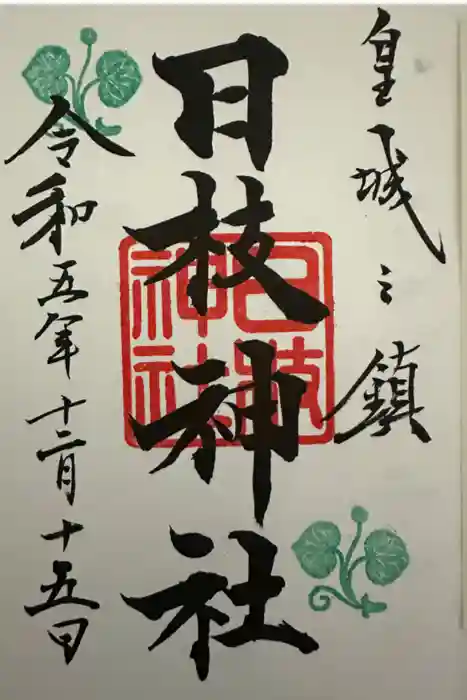 皇城之鎮
日枝神社
日枝神社
令和五年十二月十五日